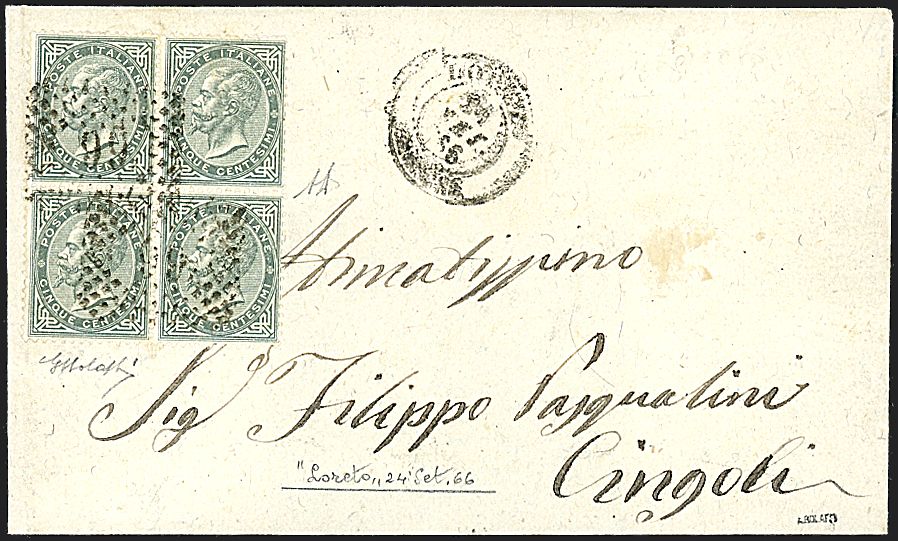 POSTE ITALIANE
CINQUE CENTESIMI
POSTE ITALIANE
CINQUE CENTESIMI
POSTE ITALIANE
CINQUE CENTESIMI
POSTE ITALIANE
CINQUE CENTESIMI
LO
66
Sigr Filippo Pasqualini
Cingoli
"Loreto„ 24 Set. 66